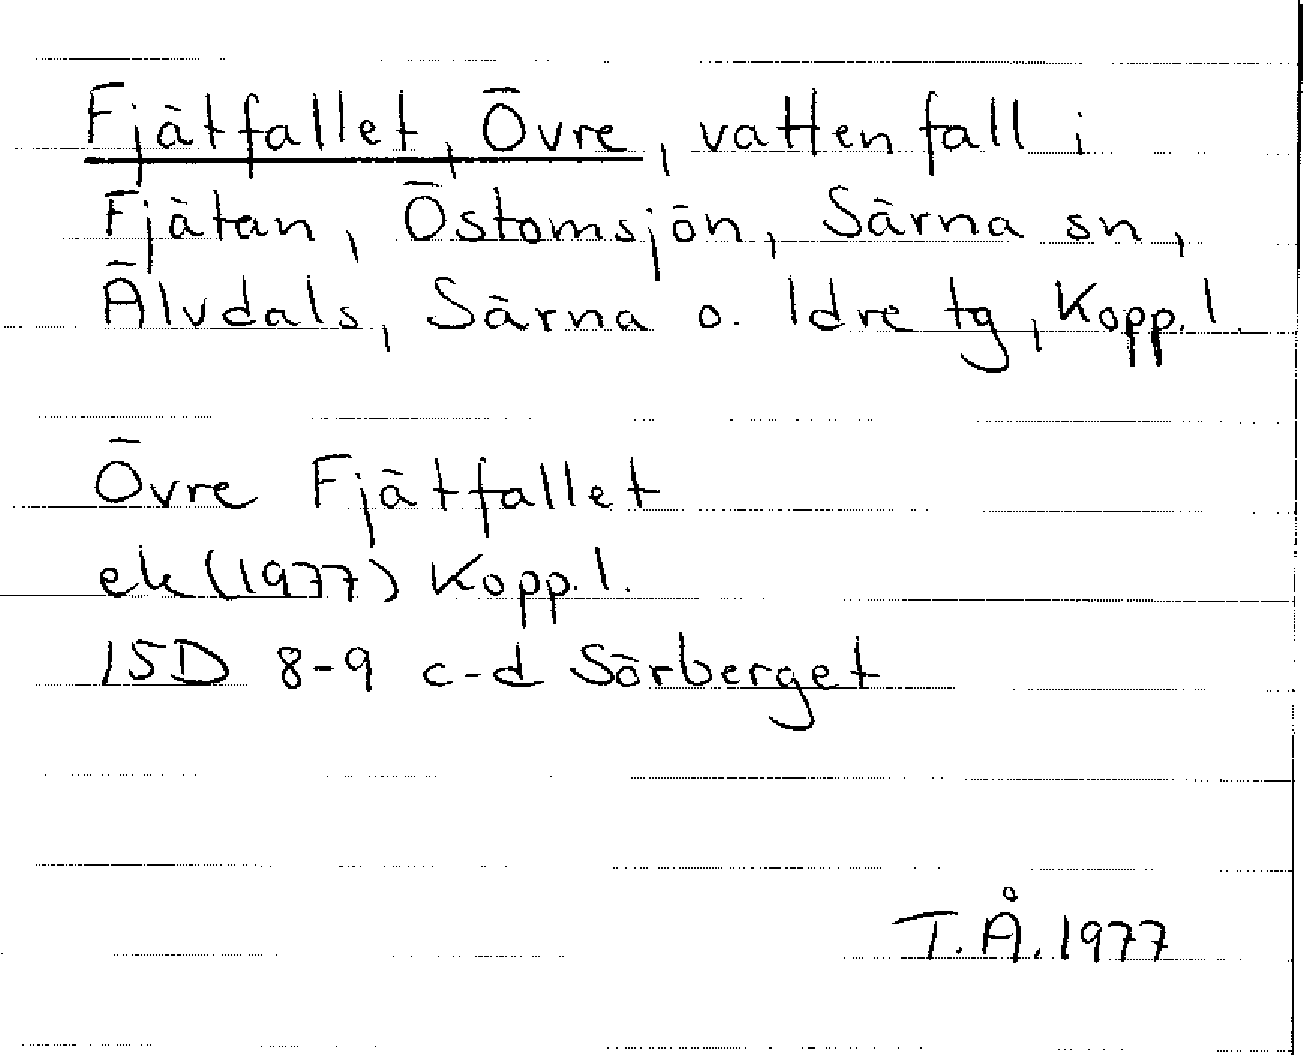 Fjätfallet, Övre, vattenfall i
Fjätan, Östomsjön, Särna sn,
Älvdals, Särna o. Idre tg, Kopp. l.
Övre Fjätfallet
ek (1977) Kopp. l.
15D 8-9 c-d Sörberget
T.Å. 1977